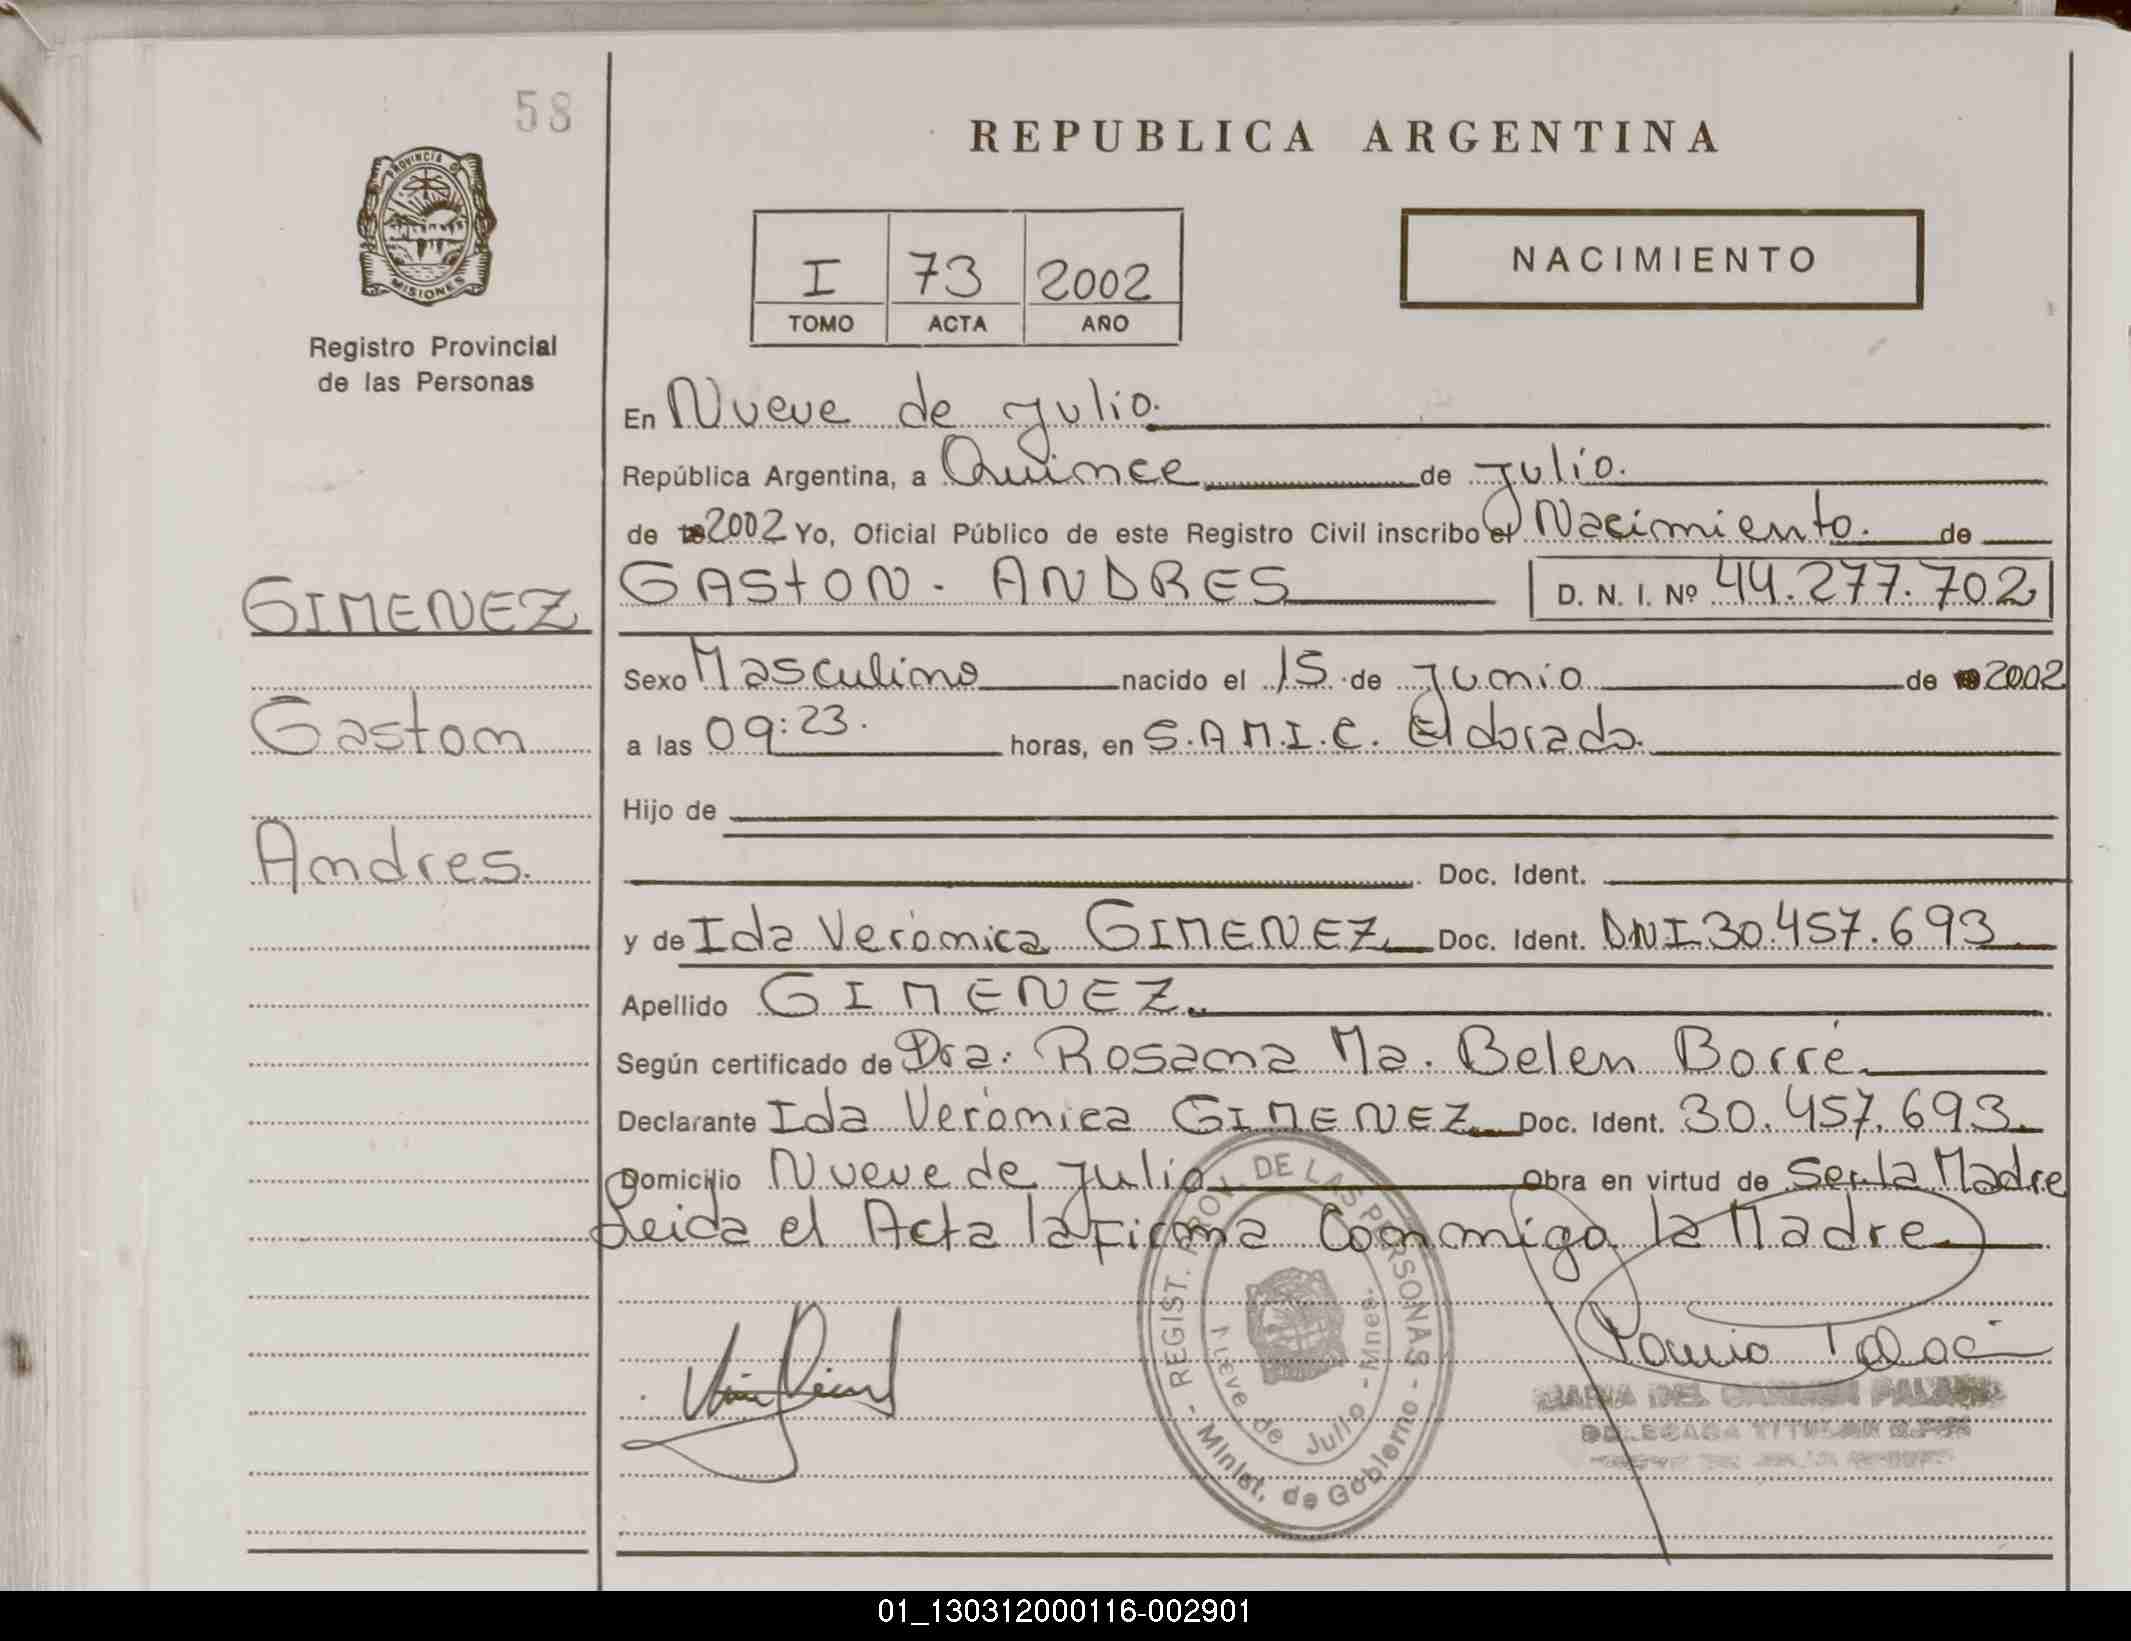 58
PROVINCIA D
MISIONES
Registro Provincial
de las Personas
GIMENEZ
Gaston
Andres.
REPUBLICA ARGENTINA
I 73 2002
TOMO ACTA AÑO
NACIMIENTO
En Nueve de julio.
República Argentina, a Quince de julio.
de 2002 Yo, Oficial Público de este Registro Civil inscribo el Nacimiento. de
GASTON - ANDRES D. N. I. Nº 44.277.702
Sexo Masculino nacido el 15 de junio de 2002
a las 09:23. horas, en S.A.M.I.C. Eldorado.
Hijo de
Doc. Ident.
y de Ida Verónica GIMENEZ Doc. Ident. DNI 30.457.693
Apellido GIMENEZ.
Según certificado de Dra: Rosana Ma. Belen Borré
Declarante Ida Verónica GIMENEZ Doc. Ident. 30.457.693.
Domicilio Nueve de julio Obra en virtud de Ser la Madre
Leida el Acta la Firma Conmigo la Madre
REGIST. PROV. DE LAS PERSONAS - Minist. de Gobierno -
Nueve de Julio - Mnes.
MARIA DEL CARMEN
DELEGADA TITULAR
01_130312000116-002901